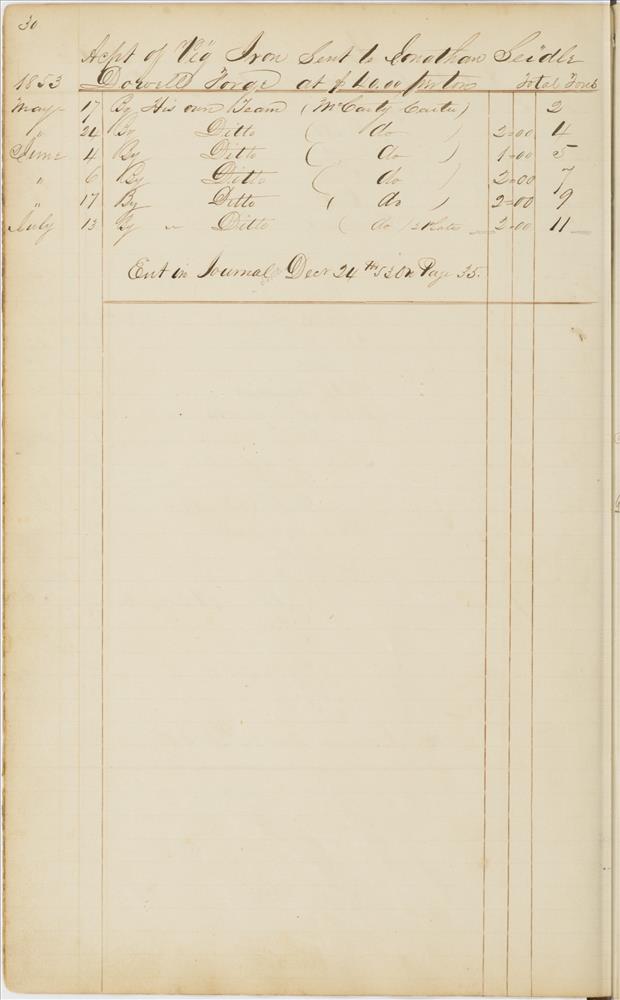 30
Acpt of Pig Iron Sent to Jonathan Seidle
1853 Dowell Forge at $40.00 per ton Total Tons
May 17 By His own Team (McCarty Carter) 2
" 21 By Ditto ( do ) 2=00 4
June 4 By Ditto ( do ) 1=00 5
" 6 By Ditto ( do ) 2=00 7
" 17 By Ditto ( do ) 2=00 9
July 13 By " Ditto ( do ) 2=00 11
Ent in Journal Decr 24th 53 On Page 35.